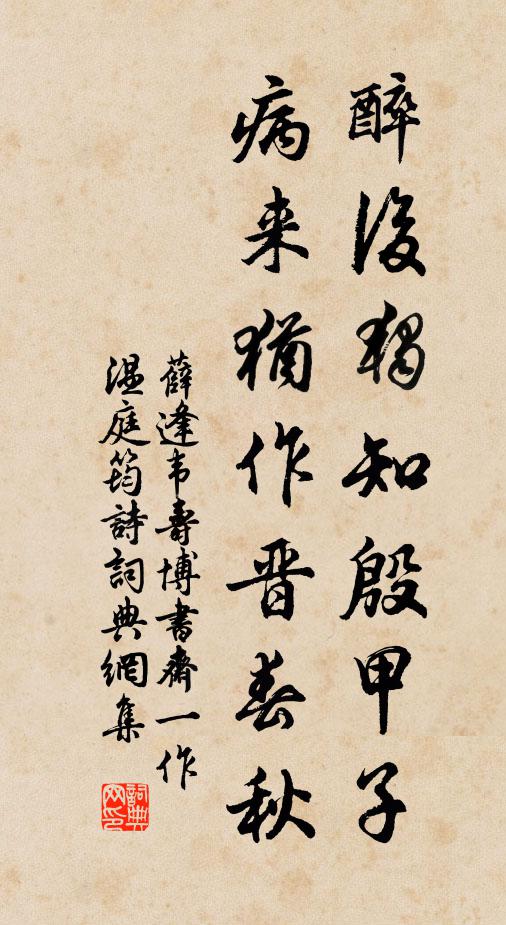 醉後獨知殷甲子
病来猶作晋春秋
薛逢韦壽博書齋一作
温庭筠詩詞典網集
詞典网印